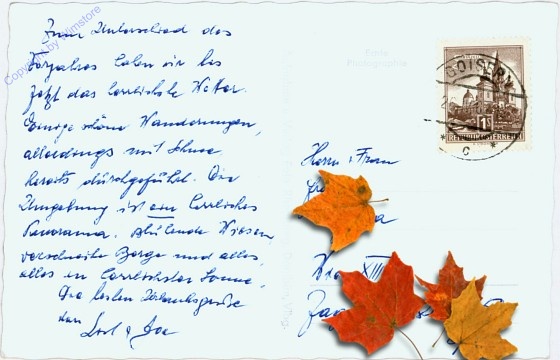 Zum Unterschied des
Vorjahres haben wir bis
jetzt das herrlichste Wetter.
Einige schöne Wanderungen,
allerdings mit Schnee
bereits durchgeführt. Die
Umgebung ist ein herrliches
Panorama. Blühende Wiesen,
verschneite Berge und alles,
alles in herrlichster Sonne.
Die besten Urlaubsgrüße
von
Copyright by Filmstore
Echte
Photographie
GOISERN
C
1S
REPUBLIK ÖSTERREICH
Herrn u. Frau
Wien XIII